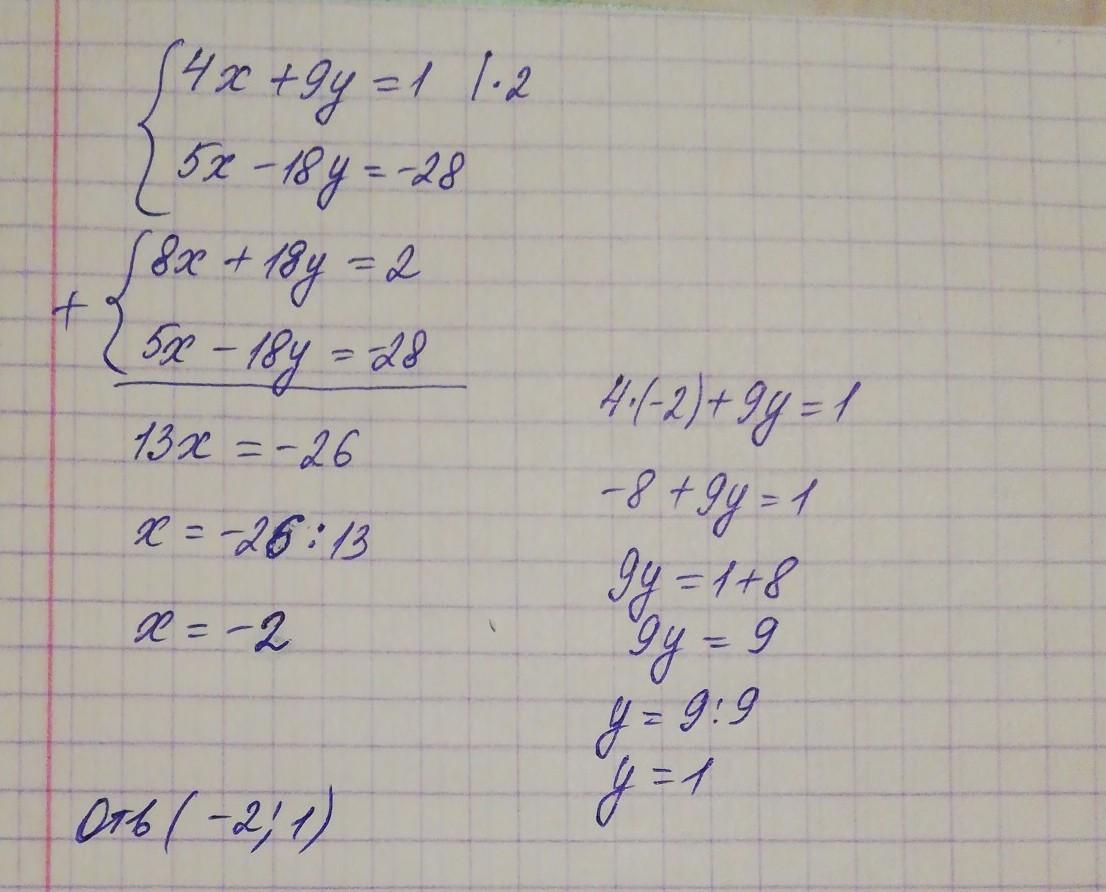 4x + 9y = 1 | · 2
5x - 18y = -28
8x + 18y = 2
+
5x - 18y = -28
13x = -26
x = -26 : 13
x = -2
4·(-2) + 9y = 1
-8 + 9y = 1
9y = 1 + 8
9y = 9
y = 9 : 9
y = 1
Отв (-2; 1)